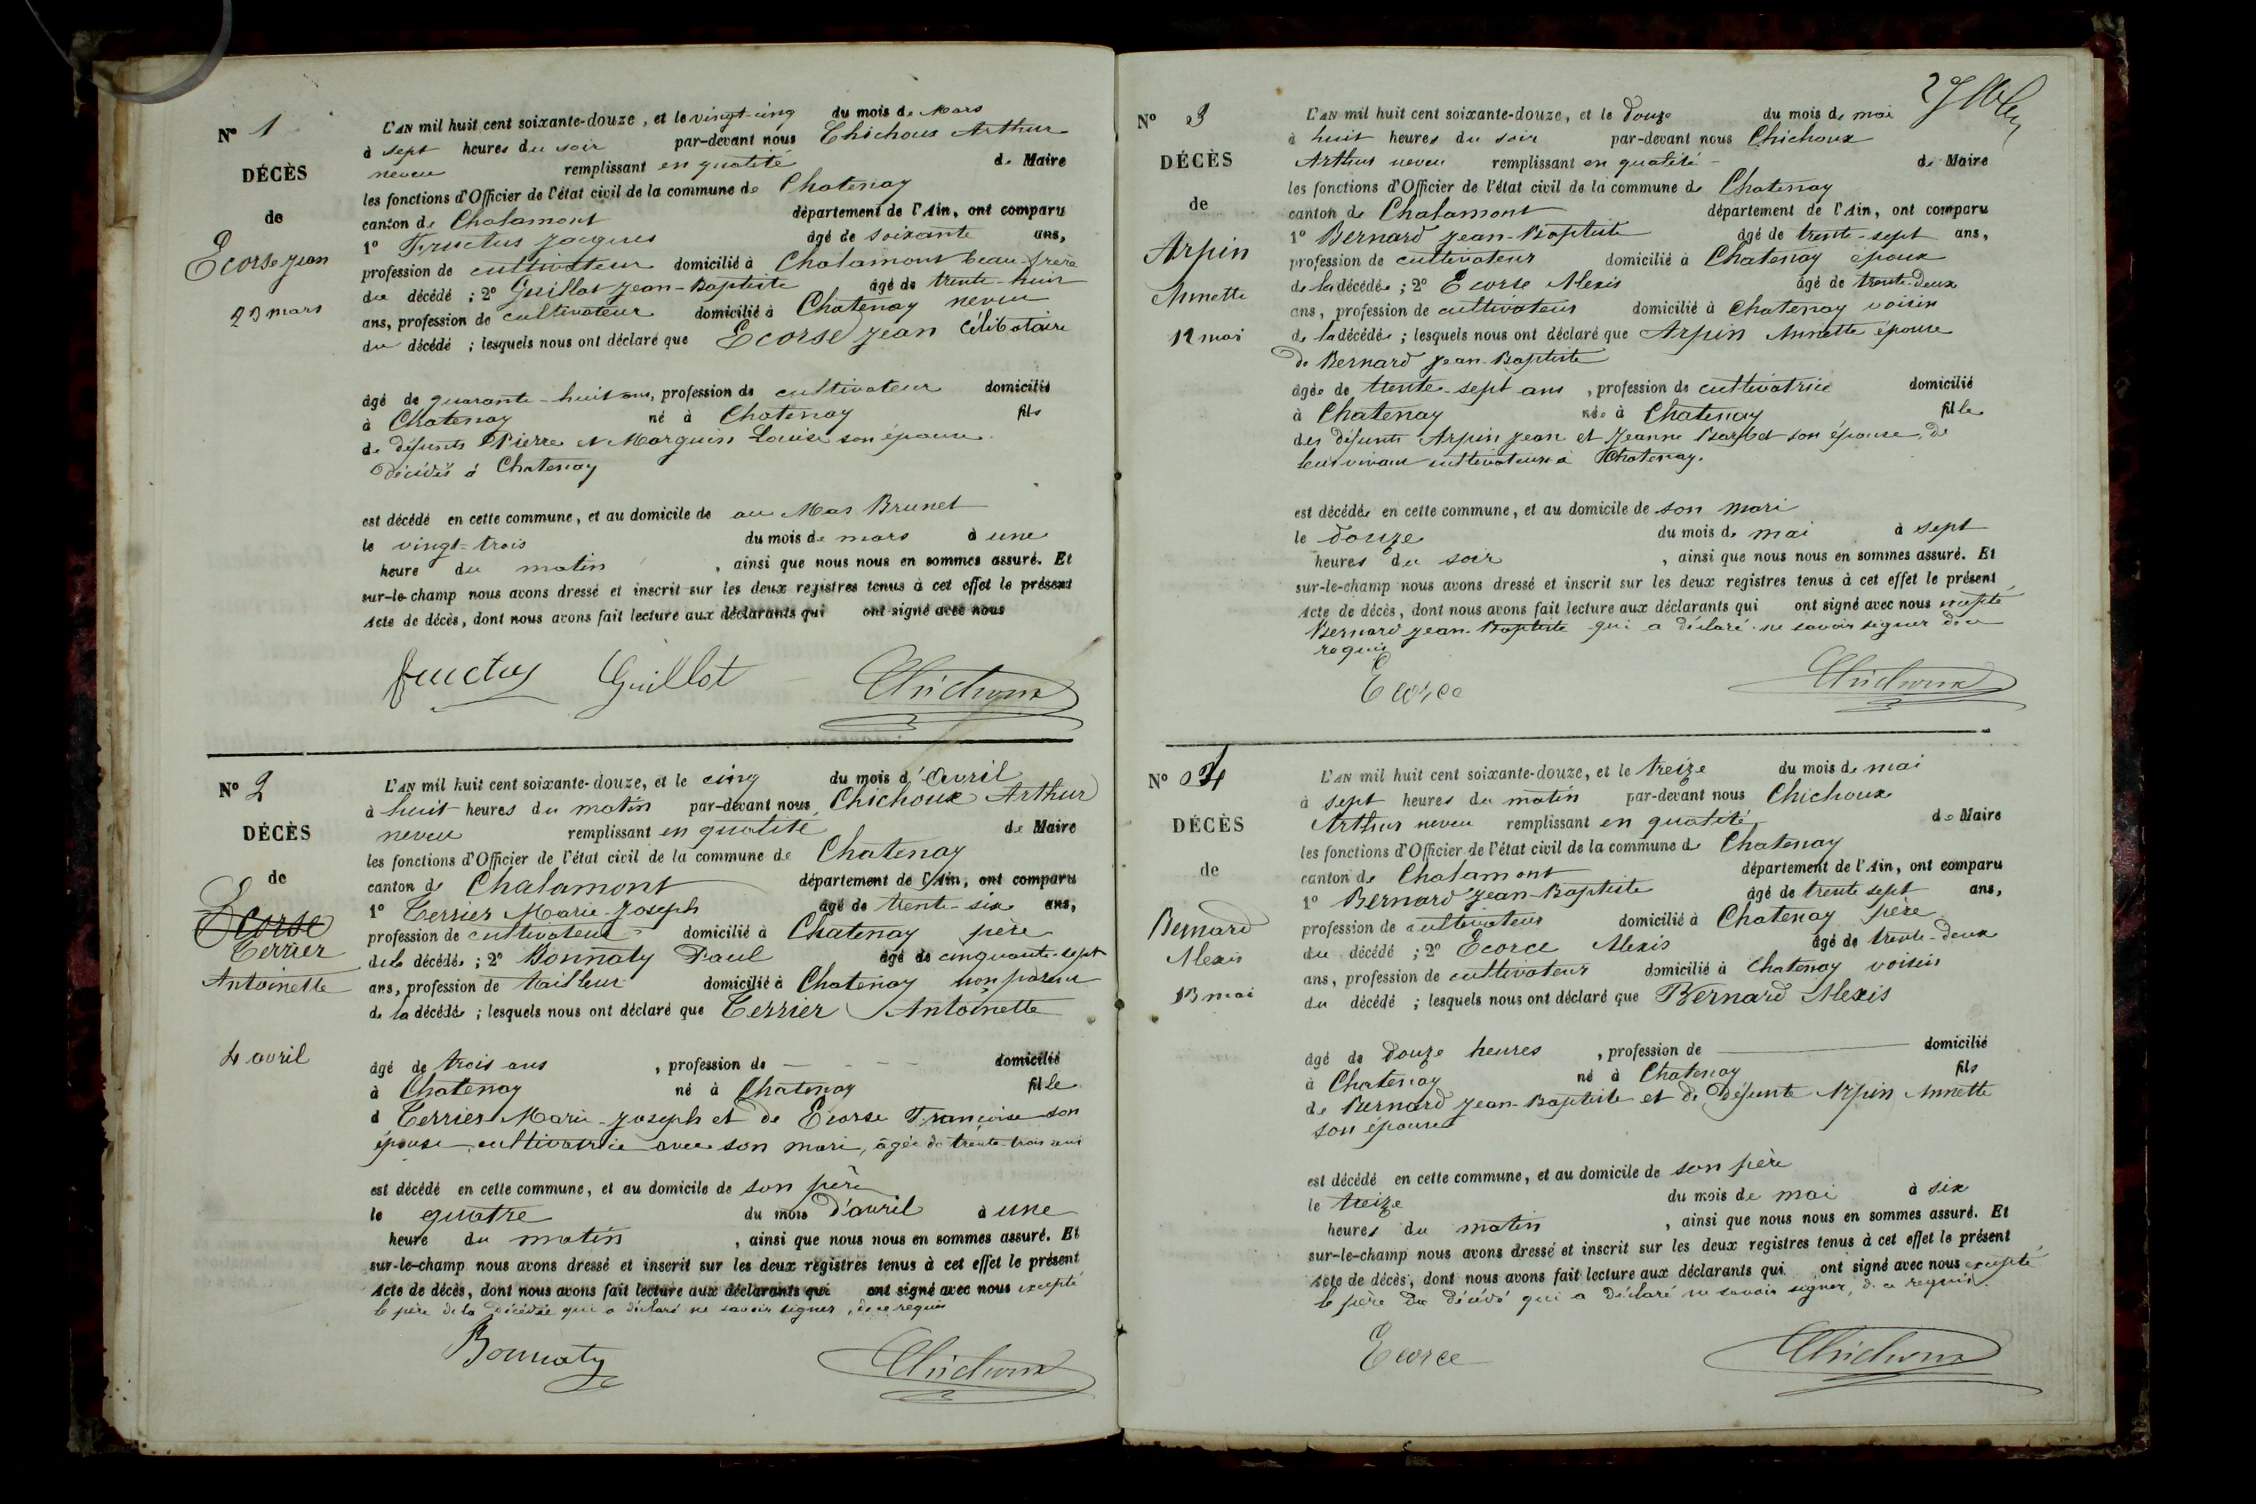 N° 1
DÉCÈS
de
Ecorse Jean
23 mars
L'AN mil huit cent soixante-douze, et le vingt-cinq du mois de Mars
à sept heures du soir par-devant nous Chichoux Arthur
neveu remplissant en qualité de Maire
les fonctions d'Officier de l'état civil de la commune de Chatenay
canton de Chalamont département de l'Ain, ont comparu
1° Fructus Jacques âgé de soixante ans,
profession de cultivateur domicilié à Chalamont beau-frère
du décédé ; 2° Guillot Jean-Baptiste âgé de trente-huit
ans, profession de cultivateur domicilié à Chatenay neveu
du décédé ; lesquels nous ont déclaré que Ecorse Jean célibataire
âgé de quarante-huit ans, profession de cultivateur domicilié
à Chatenay né à Chatenay fils
de défunts Pierre et Marguin Louise son épouse
décédés à Chatenay
est décédé en cette commune, et au domicile de au Mas Brunet
le vingt-trois du mois de mars à une
heure du matin, ainsi que nous nous en sommes assuré. Et
sur-le-champ nous avons dressé et inscrit sur les deux registres tenus à cet effet le présent
Acte de décès, dont nous avons fait lecture aux déclarants qui ont signé avec nous
fructus Guillot Chichoux
N° 2
DÉCÈS
de
Ecorse
Terrier
Antoinette
4 avril
L'AN mil huit cent soixante-douze, et le cinq du mois d'Avril
à huit heures du matin par-devant nous Chichoux Arthur
neveu remplissant en qualité de Maire
les fonctions d'Officier de l'état civil de la commune de Chatenay
canton de Chalamont département de l'Ain, ont comparu
1° Terrier Marie-Joseph âgé de trente-six ans,
profession de cultivateur domicilié à Chatenay père
de la décédée ; 2° Bonnaty Paul âgé de cinquante-sept
ans, profession de tailleur domicilié à Chatenay non parent
de la décédée ; lesquels nous ont déclaré que Terrier Antoinette
âgé de trois ans, profession de — — — domicilié
à Chatenay né à Chatenay fille
d Terrier Marie-Joseph et de Ecorse Françoise son
épouse cultivatrice avec son mari, âgée de trente-trois ans
est décédé en cette commune, et au domicile de son père
le quatre du mois d'avril à une
heure du matin, ainsi que nous nous en sommes assuré. Et
sur-le-champ nous avons dressé et inscrit sur les deux registres tenus à cet effet le présent
Acte de décès, dont nous avons fait lecture aux déclarants qui ont signé avec nous excepté
le père de la décédée qui a déclaré ne savoir signer, de ce requis
Bonnaty Chichoux
N° 3
DÉCÈS
de
Arpin
Annette
12 mai
L'AN mil huit cent soixante-douze, et le douze du mois de mai
à huit heures du soir par-devant nous Chichoux
Arthur neveu remplissant en qualité de Maire
les fonctions d'Officier de l'état civil de la commune de Chatenay
canton de Chalamont département de l'Ain, ont comparu
1° Bernard Jean-Baptiste âgé de trente-sept ans,
profession de cultivateur domicilié à Chatenay époux
de la décédée ; 2° Ecorse Alexis âgé de trente-deux
ans, profession de cultivateur domicilié à Chatenay voisin
de la décédée ; lesquels nous ont déclaré que Arpin Annette épouse
de Bernard Jean-Baptiste
âgée de trente-sept ans, profession de cultivatrice domicilié
à Chatenay née à Chatenay fille
des défunts Arpin Jean et Jeanne Barbet son épouse, de
leur vivant cultivateurs à Chatenay.
est décédée en cette commune, et au domicile de son mari
le douze du mois de mai à sept
heures du soir, ainsi que nous nous en sommes assuré. Et
sur-le-champ nous avons dressé et inscrit sur les deux registres tenus à cet effet le présent
Acte de décès, dont nous avons fait lecture aux déclarants qui ont signé avec nous excepté
Bernard Jean-Baptiste qui a déclaré ne savoir signer de ce
requis
Ecorce Chichoux
N° 4
DÉCÈS
de
Bernard
Alexis
13 mai
L'AN mil huit cent soixante-douze, et le treize du mois de mai
à sept heures du matin par-devant nous Chichoux
Arthur neveu remplissant en qualité de Maire
les fonctions d'Officier de l'état civil de la commune de Chatenay
canton de Chalamont département de l'Ain, ont comparu
1° Bernard Jean-Baptiste âgé de trente sept ans,
profession de cultivateur domicilié à Chatenay père
du décédé ; 2° Ecorce Alexis âgé de trente-deux
ans, profession de cultivateur domicilié à Chatenay voisin
du décédé ; lesquels nous ont déclaré que Bernard Alexis
âgé de douze heures, profession de — domicilié
à Chatenay né à Chatenay fils
de Bernard Jean-Baptiste et de défunte Arpin Annette
son épouse
est décédé en cette commune, et au domicile de son père
le treize du mois de mai à six
heures du matin, ainsi que nous nous en sommes assuré. Et
sur-le-champ nous avons dressé et inscrit sur les deux registres tenus à cet effet le présent
Acte de décès, dont nous avons fait lecture aux déclarants qui ont signé avec nous excepté
le père du décédé qui a déclaré ne savoir signer, de ce requis
Ecorce Chichoux